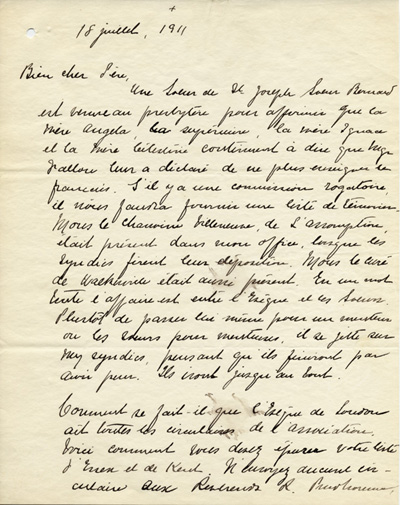 +
18 juillet, 1911
Bien cher Père,
Une Soeur de St Joseph Soeur Bernard
est venue au presbytère pour affirmer que la
mère Angela, la supérieure, la mère Ignace
et la mère Célestine continuent à dire que Mgr
Fallon leur a déclaré de ne plus enseigner le
français. S'il y a une commission rogatoire,
il nous faudra fournir une liste de témoins.
Mons le Chanoine Villeneuve, de L'assomption,
était présent dans mon office, lorsque les
syndics firent leur déposition. Mons le curé
de Walkerville était aussi présent. En un mot
toute l'affaire est entre l'Evêque et les Soeurs.
Plutôt de passer lui même pour un menteur
ou les soeurs pour menteuses, il se jette sur
les syndics, pensant qu'ils finiront par
avoir peur. Ils iront jusqu'au bout.
Comment se fait-il que l'Evêque de London
ait toutes les circulaires de l'association.
Voici comment vous devez épurer votre liste
d'Essex et de Kent. N'envoyez aucune cir-
culaire aux Reverends R.